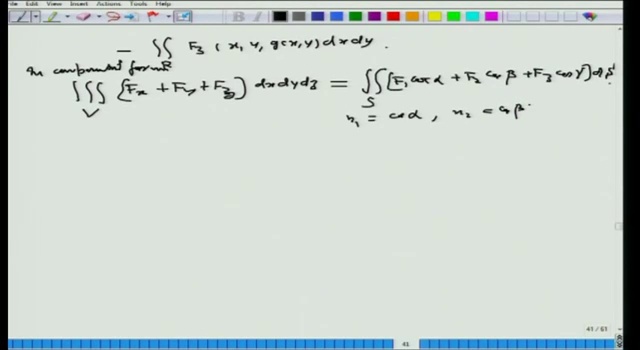 File Edit View Insert Actions Tools Help
− ∬_R F₃ (x, y, g(x,y)) dx dy.
In component form
∭_V [F_x + F_y + F_z] dx dy dz = ∬_S [F₁ cos α + F₂ cos β + F₃ cos γ] ds
n₁ = cos α, n₂ = cos β
41 / 61
41